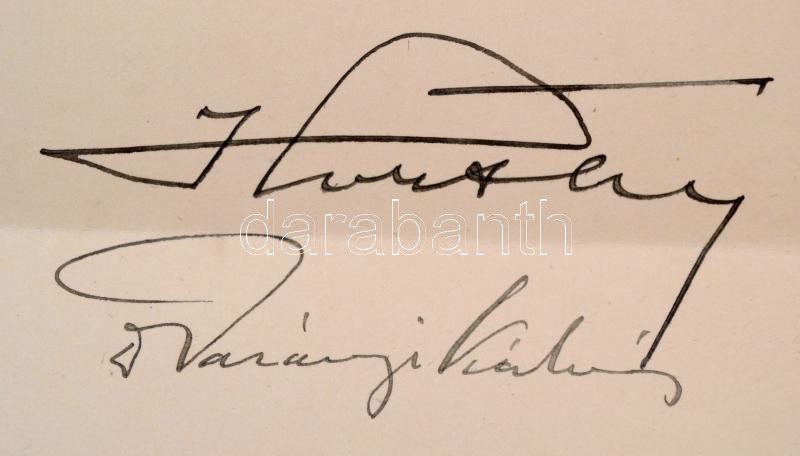 Horthy
darabanth
Dr Darányi Kálmán